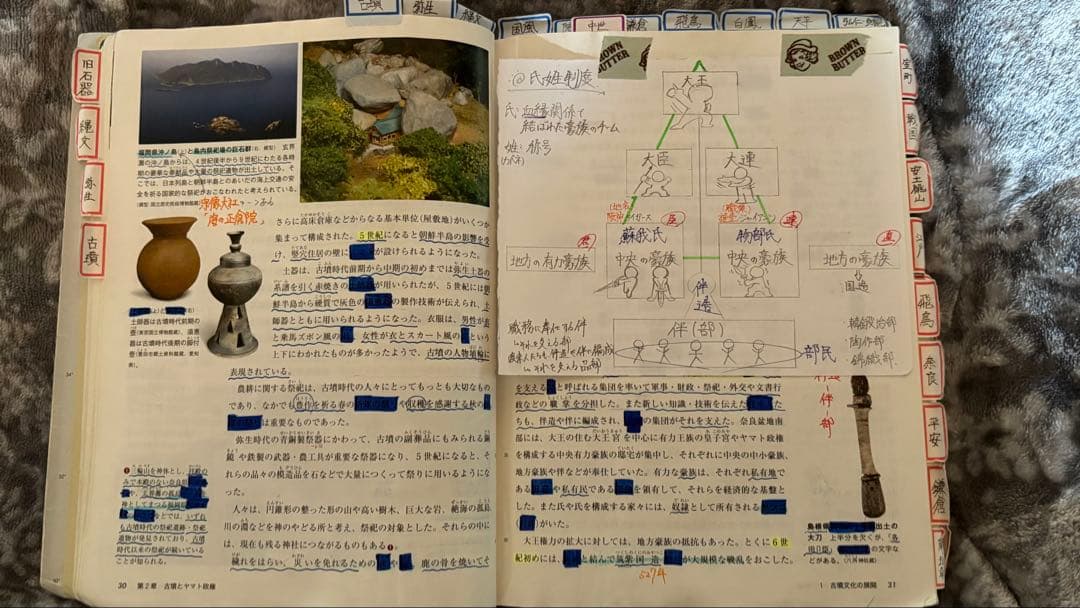 古墳
弥生
縄文
国風
中世
鎌倉
飛鳥
白鳳
天平
旧石器
縄文
弥生
古墳
福岡県沖ノ島(上)と島内祭祀場の巨石群(右、模型) 玄界
灘の沖ノ島からは、4世紀後半から9世紀にわたる各時
期の豪華な奉献品や大量の祭祀遺物が出土している。そ
こでは、日本列島と朝鮮半島とのあいだの海上交通の安
全を祈る国家的な祭祀がおこなわれたと考えられている。
(模型:国立歴史民俗博物館蔵)
宗像大社
「海の正倉院」
土師器は古墳時代前期の
器は古墳時代後期の脚付
さらに高床倉庫などからなる基本単位(屋敷地)がいくつか
集まって構成された。5世紀になると朝鮮半島の影響を受
け、竪穴住居の壁に が設けられるようになった。
土器は、古墳時代前期から中期の初めまでは弥生土器の
系譜を引く赤焼きの が用いられたが、5世紀には朝
鮮半島から硬質で灰色の の製作技術が伝えられ、土
師器とともに用いられるようになった。衣服は、男性が衣
と乗馬ズボン風の 、女性が衣とスカート風の という
上下にわかれたものが多かったようで、古墳の人物埴輪に
表現されている。
農耕に関する祭祀は、古墳時代の人々にとってもっとも大切なもの
であり、なかでも豊作を祈る春の や収穫を感謝する秋の
は重要なものであった。
弥生時代の青銅製祭器にかわって、古墳の副葬品にもみられる銅
鏡や鉄製の武器・農工具が重要な祭器になり、5世紀になると、そ
れらの品々の模造品を石などで大量につくって祭りに用いるようにな
った。
人々は、円錐形の整った形の山や高い樹木、巨大な岩、絶海の孤島、
川の淵などを神のやどる所と考え、祭祀の対象とした。それらの中に
は、現在も残る神社につながるものもある❶。
穢れをはらい、災いを免れるための や 、鹿の骨を焼いてそ
❶三輪山を神体とし、拝殿の
みで本殿のない奈良県
などでは、いずれ
も古墳時代の祭祀遺跡・祭祀
遺物が発見されており、古墳
時代以来の祭祀が続いている
ことが知られる。
30 第2章 古墳とヤマト政権
BROWN
BUTTER
BROWN
BUTTER
@氏姓制度
氏:血縁関係で
結ばれた豪族のチーム
姓:称号
(カバネ)
大王
大臣
大連
臣
連
蘇我氏
中央の豪族
物部氏
中央の豪族
君
地方の有力豪族
直
地方の豪族
国造
伴造
伴(部)
部民
職務に奉仕する伴
それを支える部
それを支える品部
韓鍛冶部
陶作部
錦織部
伴造-伴-部
を支える と呼ばれる集団を率いて軍事・財政・祭祀・外交や文書行
政などの職掌を分担した。また新しい知識・技術を伝えた
たちも、伴造や伴に編成され、 の集団がそれを支えた。奈良盆地南
部には、大王の住む大王宮を中心に有力王族の皇子宮やヤマト政権
を構成する中央有力豪族の邸宅が集中し、それぞれに中央の中小豪族、
地方豪族や伴などが奉仕していた。有力な豪族は、それぞれ私有地で
ある や私有民である を領有して、それらを経済的な基盤と
した。また氏や氏を構成する家々には、奴隷として所有される
がいた。
大王権力の拡大に対しては、地方豪族の抵抗もあった。とくに6世
紀初めには、 と結んで筑紫国造 が大規模な戦乱をおこした。
527年
島根県 出土の
大刀 上半分を欠くが、「各
田卩臣」 の文字な
どがある。(八雲神社蔵)
1 古墳文化の展開 31
室町
安土桃山
江戸
飛鳥
奈良
平安
鎌倉